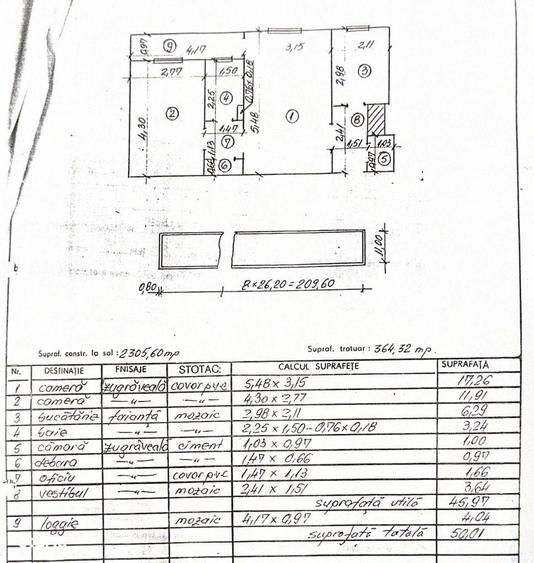 0,97
9
4,17
3,15
2,11
2,77
1,50
2,98
3
0,76x0,18
2,25
4
2
5,48
1
8
4,30
1,47
7
2,41
1,51
1,03
1,13
0,66
6
0,97
5
11,00
0,80
8x26,20=209,60
Supraf. constr. la sol: 2305,60 mp
Supraf. trotuar: 364,32 mp.
Nr. DESTINAȚIE FINISAJE STOTAC: CALCUL SUPRAFEȚE SUPRAFAȚĂ
1 cameră zugrăveală covor pvc 5,48 x 3,15 17,26
2 cameră —"— —"— 4,30 x 2,77 11,91
3 bucătărie faianță mozaic 2,98 x 2,11 6,29
4 baie —"— —"— 2,25 x 1,50-0,76 x 0,18 3,24
5 cămară zugrăveală ciment 1,03 x 0,97 1,00
6 debara —"— —"— 1,47 x 0,66 0,97
7 oficiu —"— covor pvc 1,47 x 1,13 1,66
8 vestibul —"— mozaic 2,41 x 1,51 3,64
suprafață utilă 45,97
9 loggie mozaic 4,17 x 0,97 4,04
suprafață totală 50,01